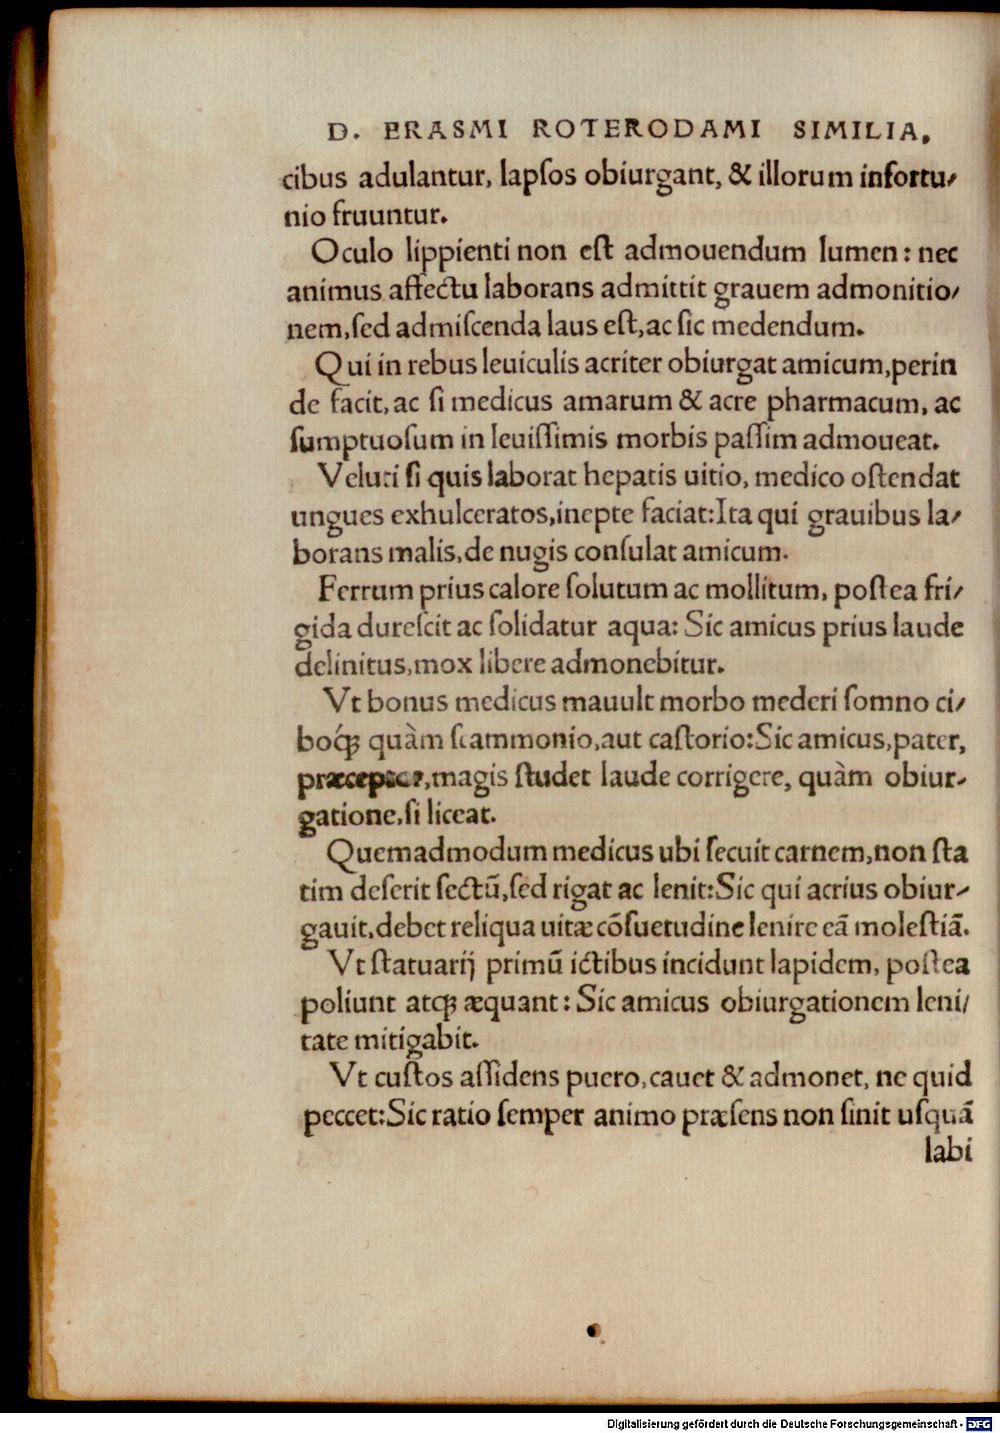 D. ERASMI ROTERODAMI SIMILIA,
cibus adulantur, lapſos obiurgant, & illorum infortu⸗
nio fruuntur.
Oculo lippienti non eſt admouendum lumen: nec
animus affectu laborans admittit grauem admonitio⸗
nem, ſed admiſcenda laus eſt, ac ſic medendum.
Qui in rebus leuiculis acriter obiurgat amicum, perin
de facit, ac ſi medicus amarum & acre pharmacum, ac
ſumptuoſum in leuiſſimis morbis paſſim admoueat.
Veluti ſi quis laborat hepatis uitio, medico oſtendat
ungues exhulceratos, inepte faciat: Ita qui grauibus la⸗
borans malis, de nugis conſulat amicum.
Ferrum prius calore ſolutum ac mollitum, poſtea fri⸗
gida dureſcit ac ſolidatur aqua: Sic amicus prius laude
delinitus, mox libere admonebitur.
Vt bonus medicus mauult morbo mederi ſomno ci⸗
boq́ꝫ quàm ſcammonio, aut caſtorio: Sic amicus, pater,
præceptor, magis ſtudet laude corrigere, quàm obiur⸗
gatione, ſi liceat.
Quemadmodum medicus ubi ſecuit carnem, non ſta
tim deſerit ſectū, ſed rigat ac lenit: Sic qui acrius obiur⸗
gauit, debet reliqua uitæ cōſuetudine lenire eā moleſtiā.
Vt ſtatuarij primū ictibus incidunt lapidem, poſtea
poliunt atqꝫ æquant: Sic amicus obiurgationem leni⸗
tate mitigabit.
Vt cuſtos aſſidens puero, cauet & admonet, ne quid
peccet: Sic ratio ſemper animo præſens non ſinit uſquā
labi
Digitalisierung gefördert durch die Deutsche Forschungsgemeinschaft - DFG